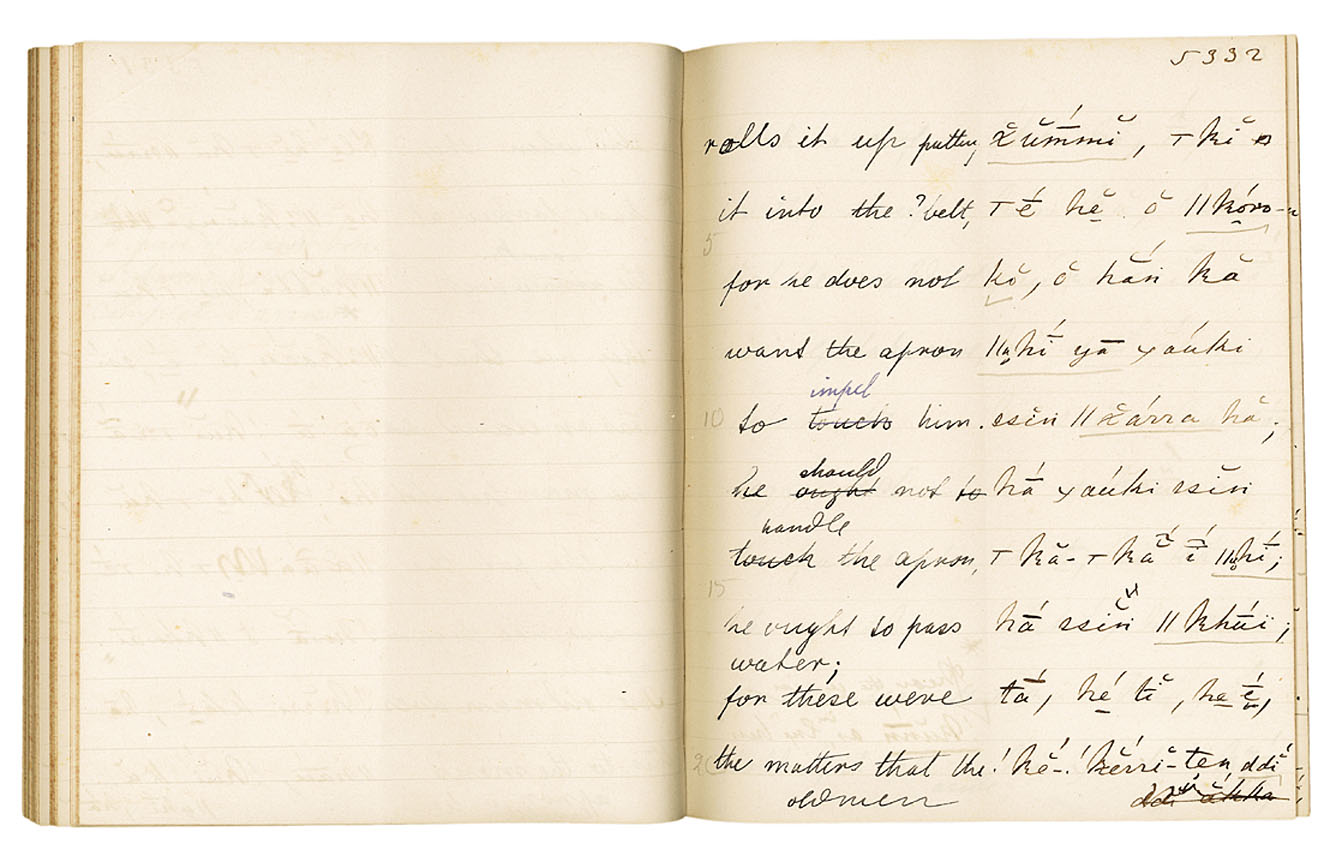 5332
rolls it up putting, žŭḿmĭ, ⊤ kĭ
it into the ? belt, ⊤ é hĕ ŏ ǁkóro-
5
for he does not kŏ, ŏ hăń kă
want the apron yā χaúki
impel
10 to touch him. ssĕn ǁžárra hă;
should
he ought not to há χaúki ssĕn
handle
touch the apron,
15
he ought to pass há ssĕn
water;
for these were tá, hé tĭ, he
20 the matters that the !kĕ-!kérri-ten ddí
old men ddí ákka